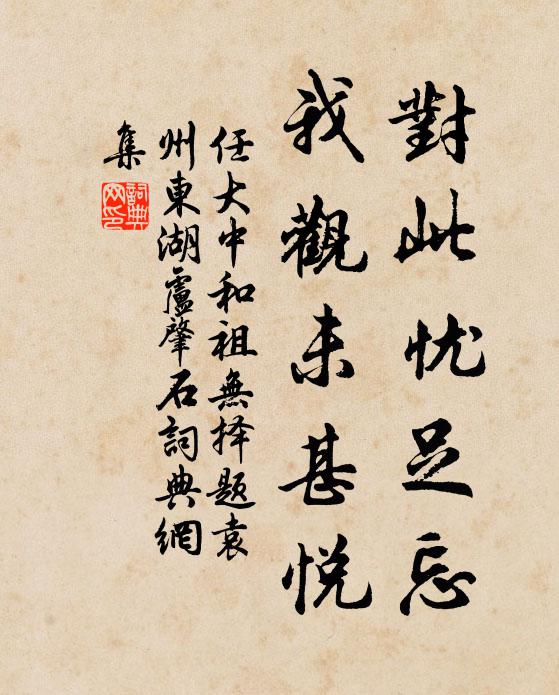 對此忧足忘
我觀未甚悦
任大中和祖無择题袁
州東湖盧肇石詞典網
集
詞典
网印